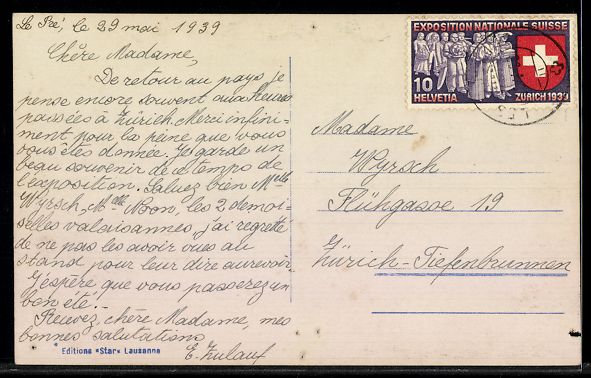 Le Pré, le 29 mai 1939
Chère Madame,
De retour au pays je
pense encore souvent aux heures
passées à Zurich. Merci infini-
ment pour la peine que vous
vous êtes donnée. J'garde un
beau souvenir de ce temps de
l'exposition. Saluez bien Melle
Wyrsch, Melle Noon, les 2 demoi-
selles valaisannes, j'ai regretté
de ne pas les avoir vues au
stand pour leur dire au revoir.
J'espère que vous passerez un
bon été.-
Recevez, chère Madame, mes
bonnes salutations
E. Zulauf
Editions "Star" Lausanne
EXPOSITION NATIONALE SUISSE
10
HELVETIA ZURICH 1939
Madame
Wyrsch
Flühgasse 19
Zürich-Tiefenbrunnen